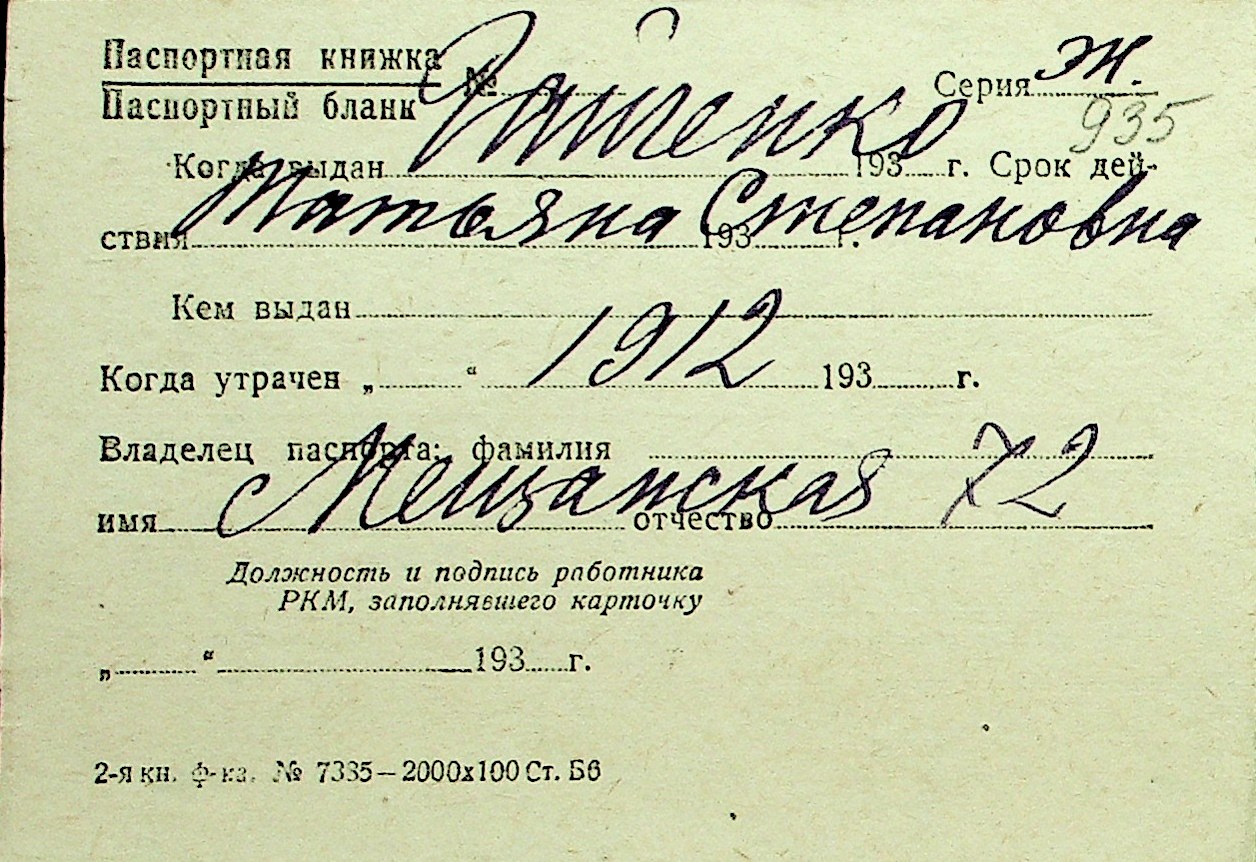 Паспортная книжка
Паспортный бланк № Серия Э Ж.
935
Гайченко
Когда выдан 193 г. Срок дей-
Татьяна Степановна
ствия 193 г.
Кем выдан
1912
Когда утрачен „ “ 193 г.
Владелец паспорта: фамилия
Мещанская 72
имя отчество
Должность и подпись работника
РКМ, заполнявшего карточку
„ “ 193 г.
2-я кн. ф-ка. № 7335—2000х100 Ст. Б6